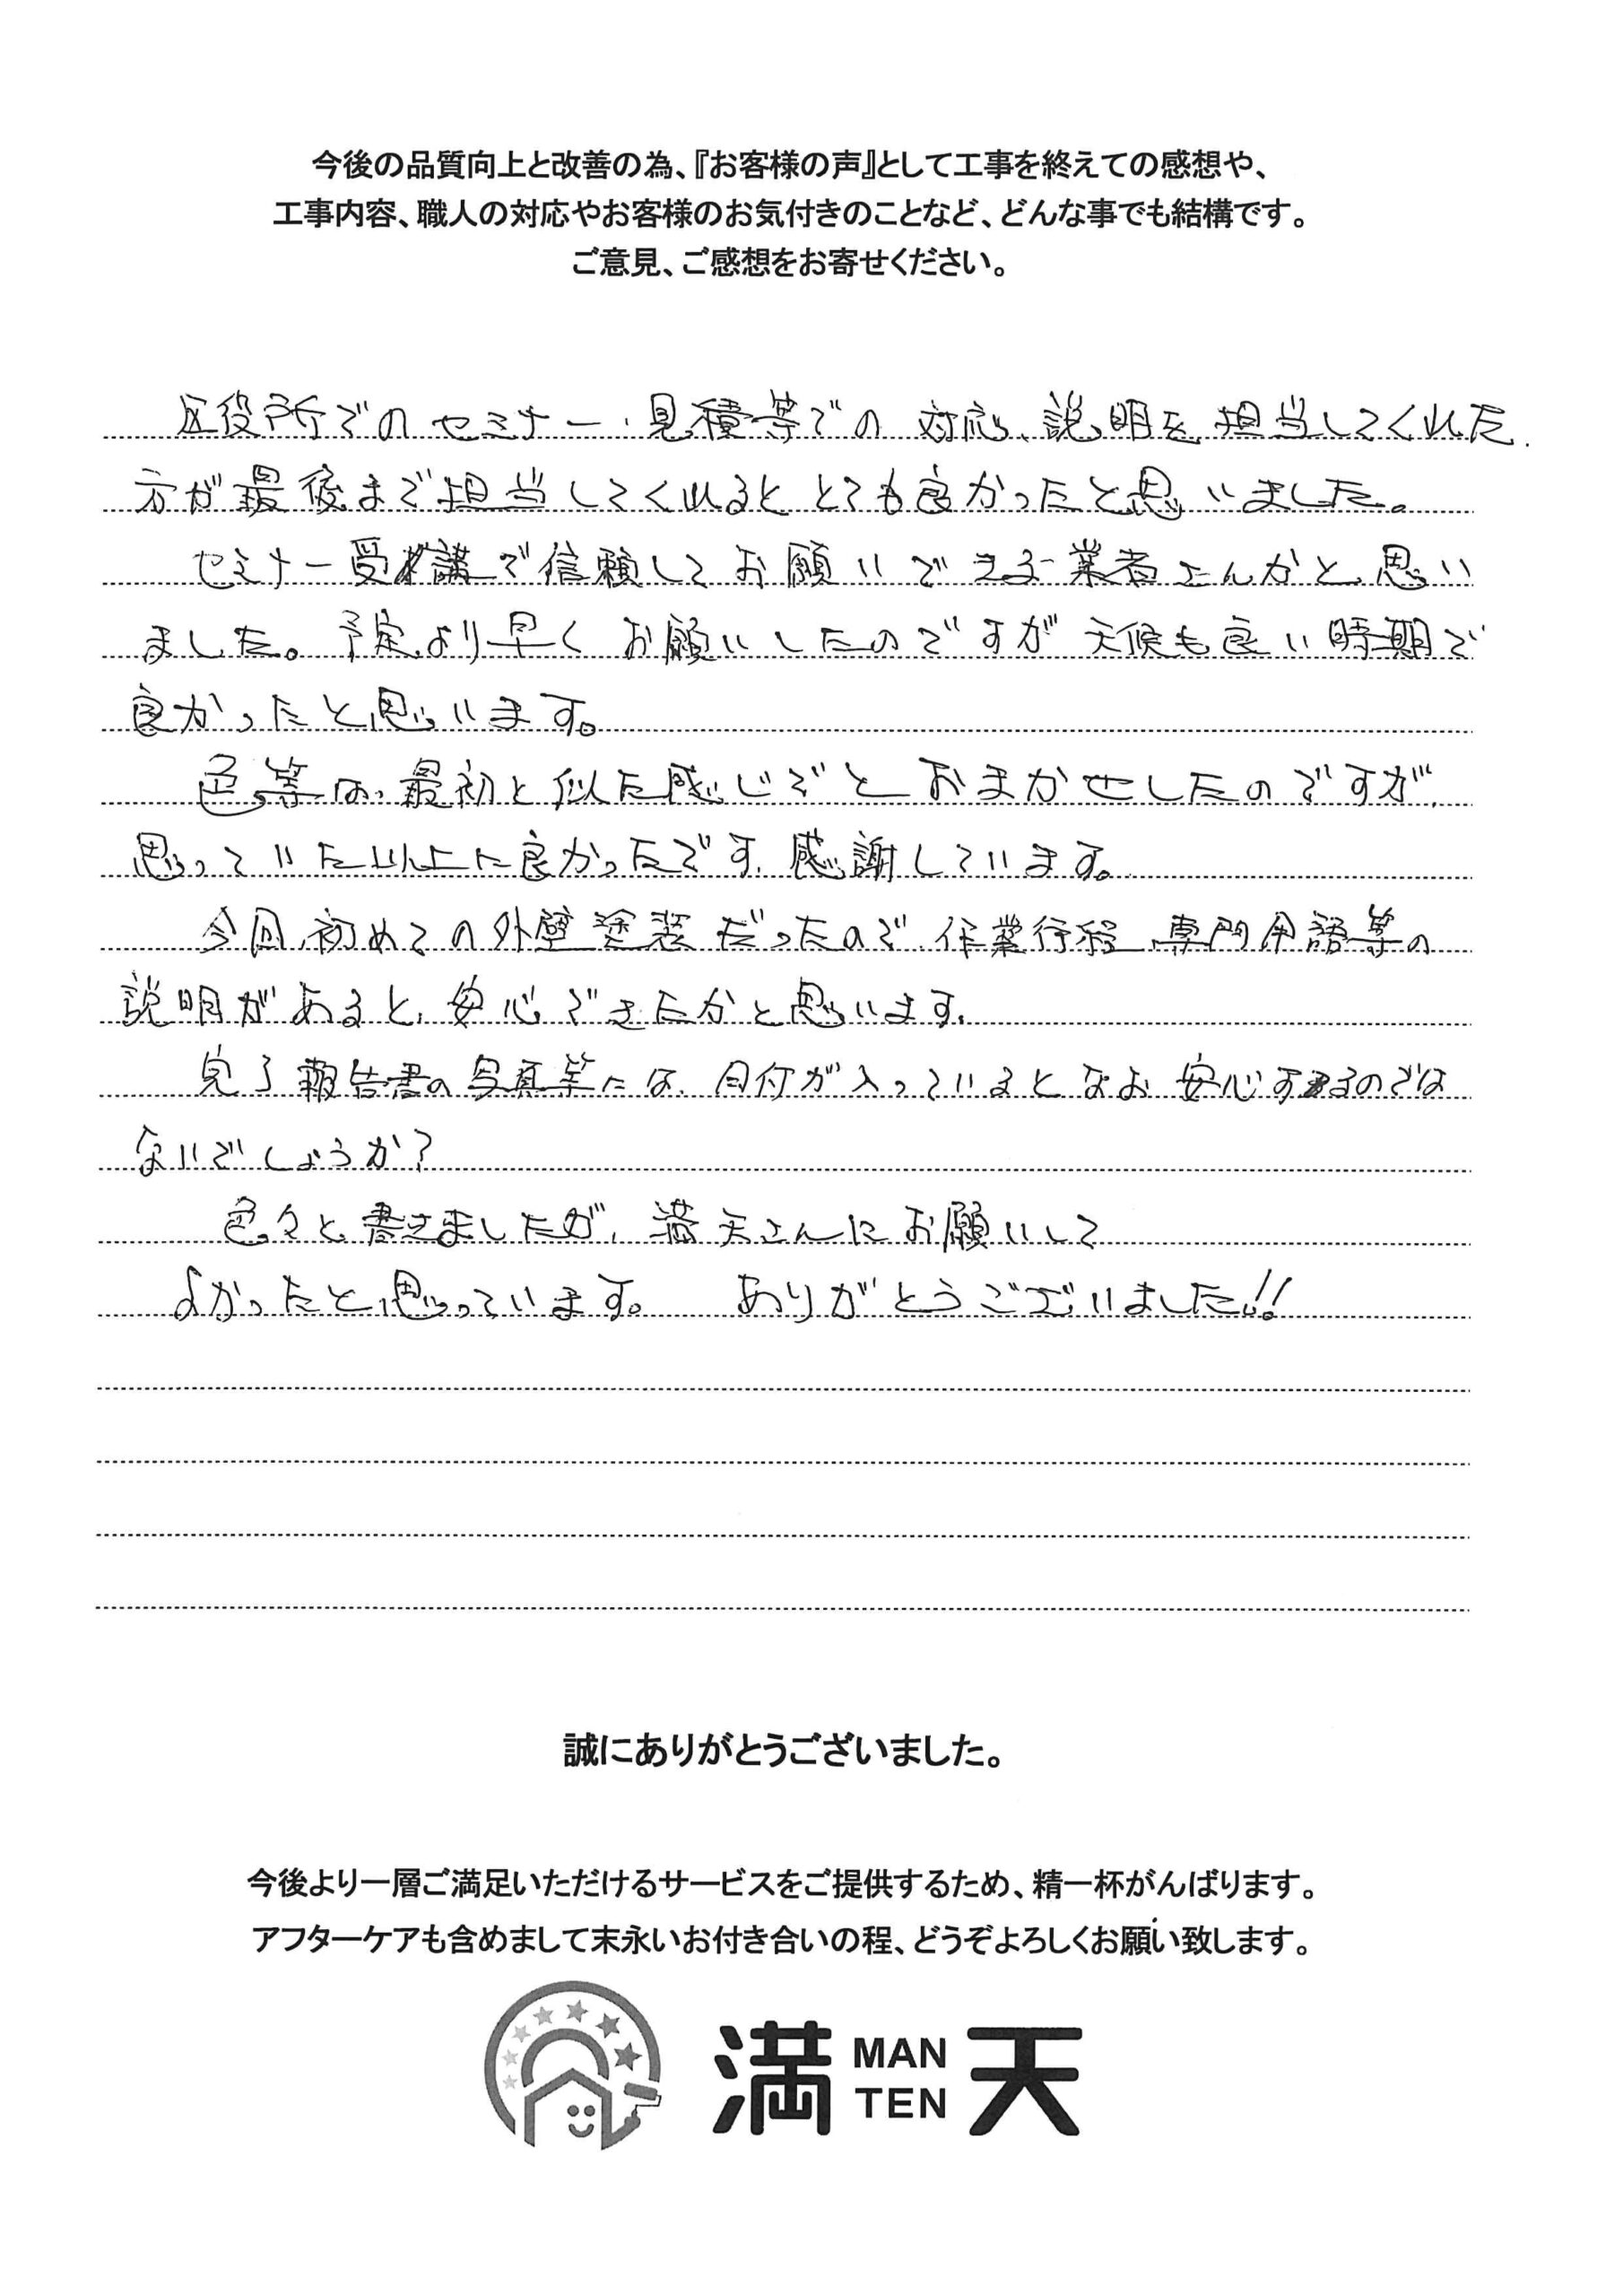 今後の品質向上と改善の為、『お客様の声』として工事を終えての感想や、
工事内容、職人の対応やお客様のお気付きのことなど、どんな事でも結構です。
ご意見、ご感想をお寄せください。
区役所でのセミナー、見積等での対応、説明を担当してくれた
方が最後まで担当してくれるととても良かったと思いました。
セミナー受講で信頼してお願いできる業者さんかと思い
ました。予定より早くお願いしたのですが天候も良い時期で
良かったと思います。
色等は、最初と似た感じでとおまかせしたのですが、
思っていた以上に良かったです、感謝しています。
今回、初めての外壁塗装だったので、作業行程、専門用語等の
説明があると、安心できたかと思います。
完了報告書の写真等には、日付が入っているとなお安心するのでは
ないでしょうか?
色々と書きましたが、満天さんにお願いして
よかったと思っています。 ありがとうございました!!
誠にありがとうございました。
今後より一層ご満足いただけるサービスをご提供するため、精一杯がんばります。
アフターケアも含めまして末永いお付き合いの程、どうぞよろしくお願い致します。
満 MAN TEN 天